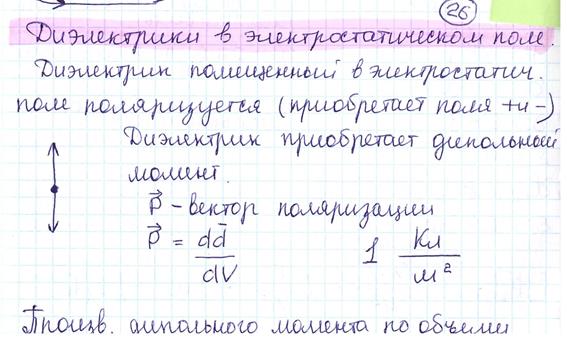 26
Диэлектрики в электростатическом поле.
Диэлектрик помещенный в электростатич.
поле поляризуется (приобретает поля + и -)
Диэлектрик приобретает дипольный
момент.
P⃗ - вектор поляризации
P⃗ = dd̄/dV 1 Кл/м²
Произв. дипольного момента по объёми